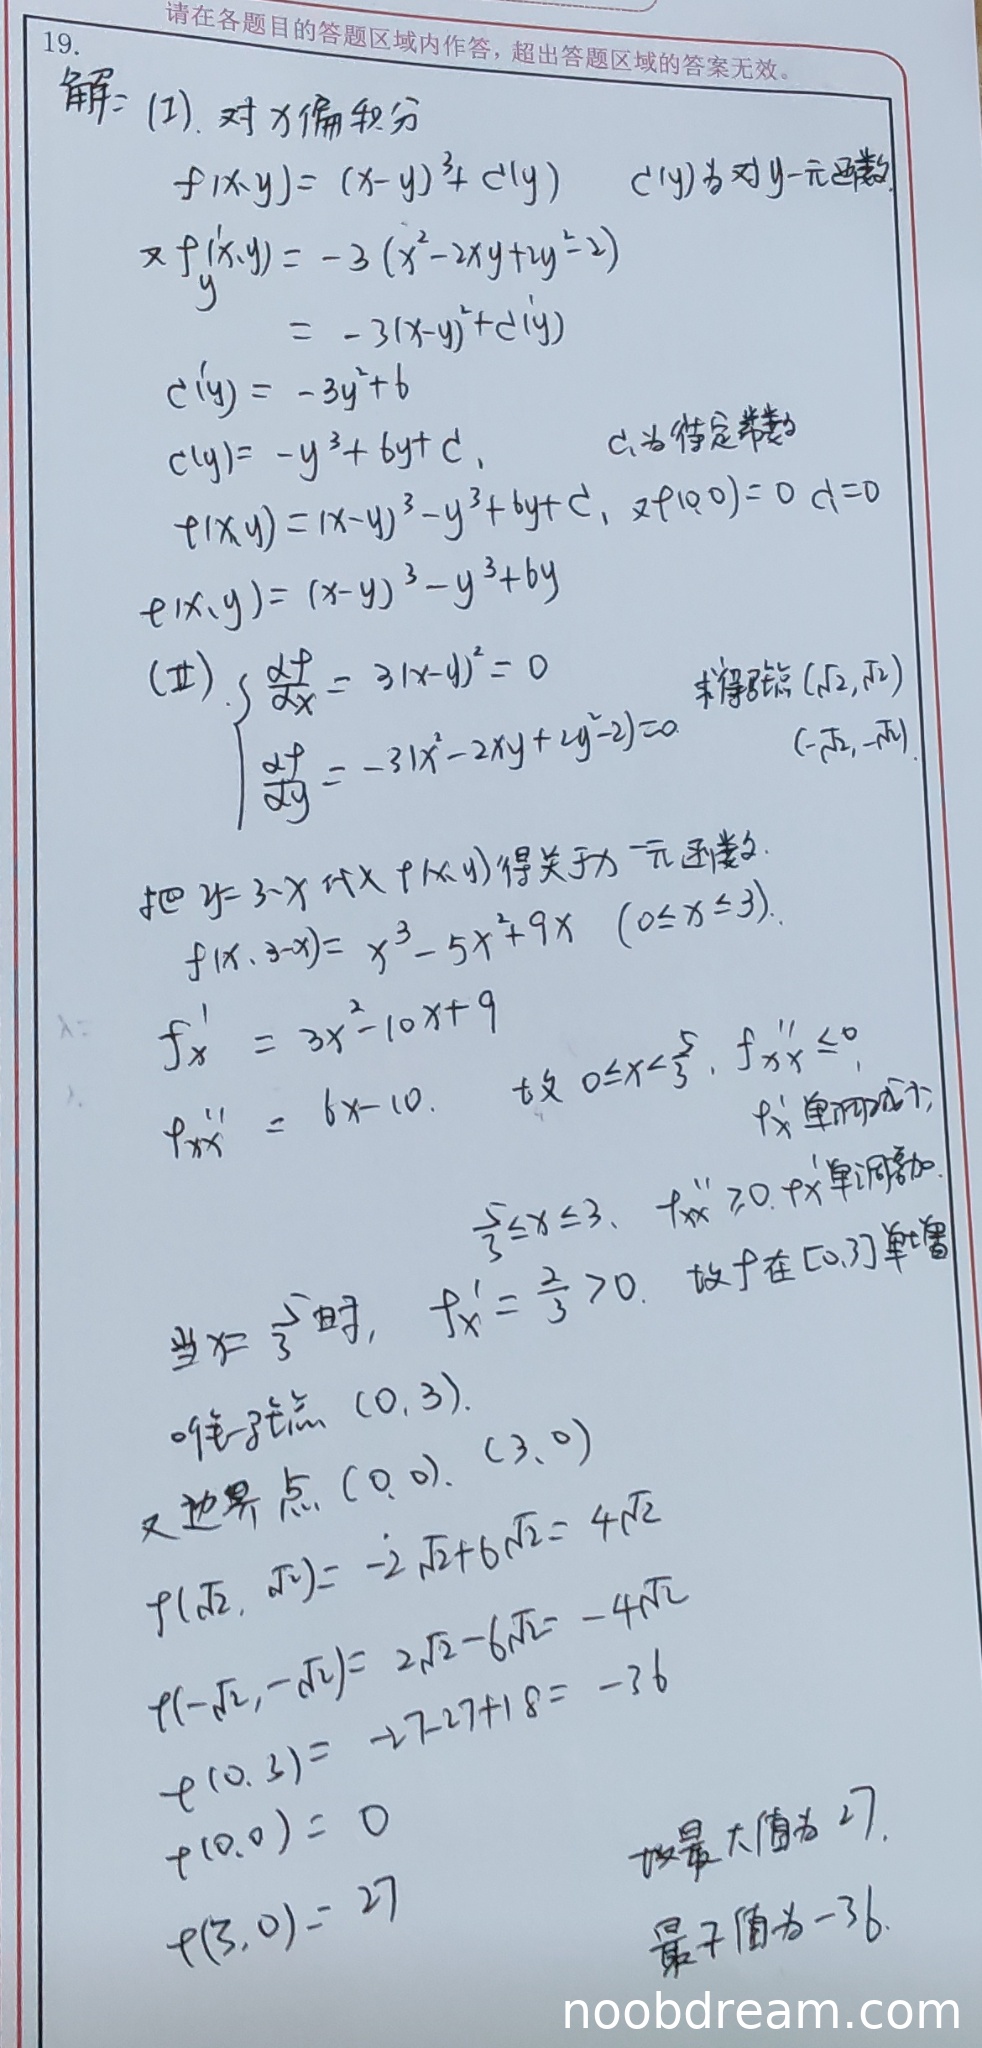 请在各题目的答题区域内作答，超出答题区域的答案无效。
19.
解: (I). 对x偏积分
f(x,y)= (x-y)³+C(y) C(y)为对y一元函数
又 f'y(x,y) = -3(x²-2xy+2y²-2)
= -3(x-y)²+C'(y)
C'(y) = -3y²+6
C(y)= -y³+6y+C₁ C₁为待定常数
f(x,y)=(x-y)³-y³+6y+C₁ 又f(0,0)=0 C₁=0
f(x,y)= (x-y)³-y³+6y
(II). { ∂f/∂x = 3(x-y)²=0 求得驻点(√2,√2)
∂f/∂y = -3(x²-2xy+2y²-2)=0 (-√2,-√2).
把y=3-x代入f(x,y)得关于x一元函数.
f(x,3-x)= x³-5x²+9x (0≤x≤3).
fx' = 3x²-10x+9
fxx'' = 6x-10. 故 0≤x<5/3, fxx''≤0,
fx'单调减少;
5/3≤x≤3, fxx''≥0. fx'单调增加.
当x=5/3时, fx'=2/3>0. 故f在[0,3]单增
唯一驻点 (0,3).
又边界点 (0,0). (3,0)
f(√2,√2)= -2√2+6√2= 4√2
f(-√2,-√2)= 2√2-6√2= -4√2
f(0,3)= -27-27+18= -36
f(0,0)= 0
故最大值为27.
f(3,0)= 27
最小值为-36.
noobdream.com